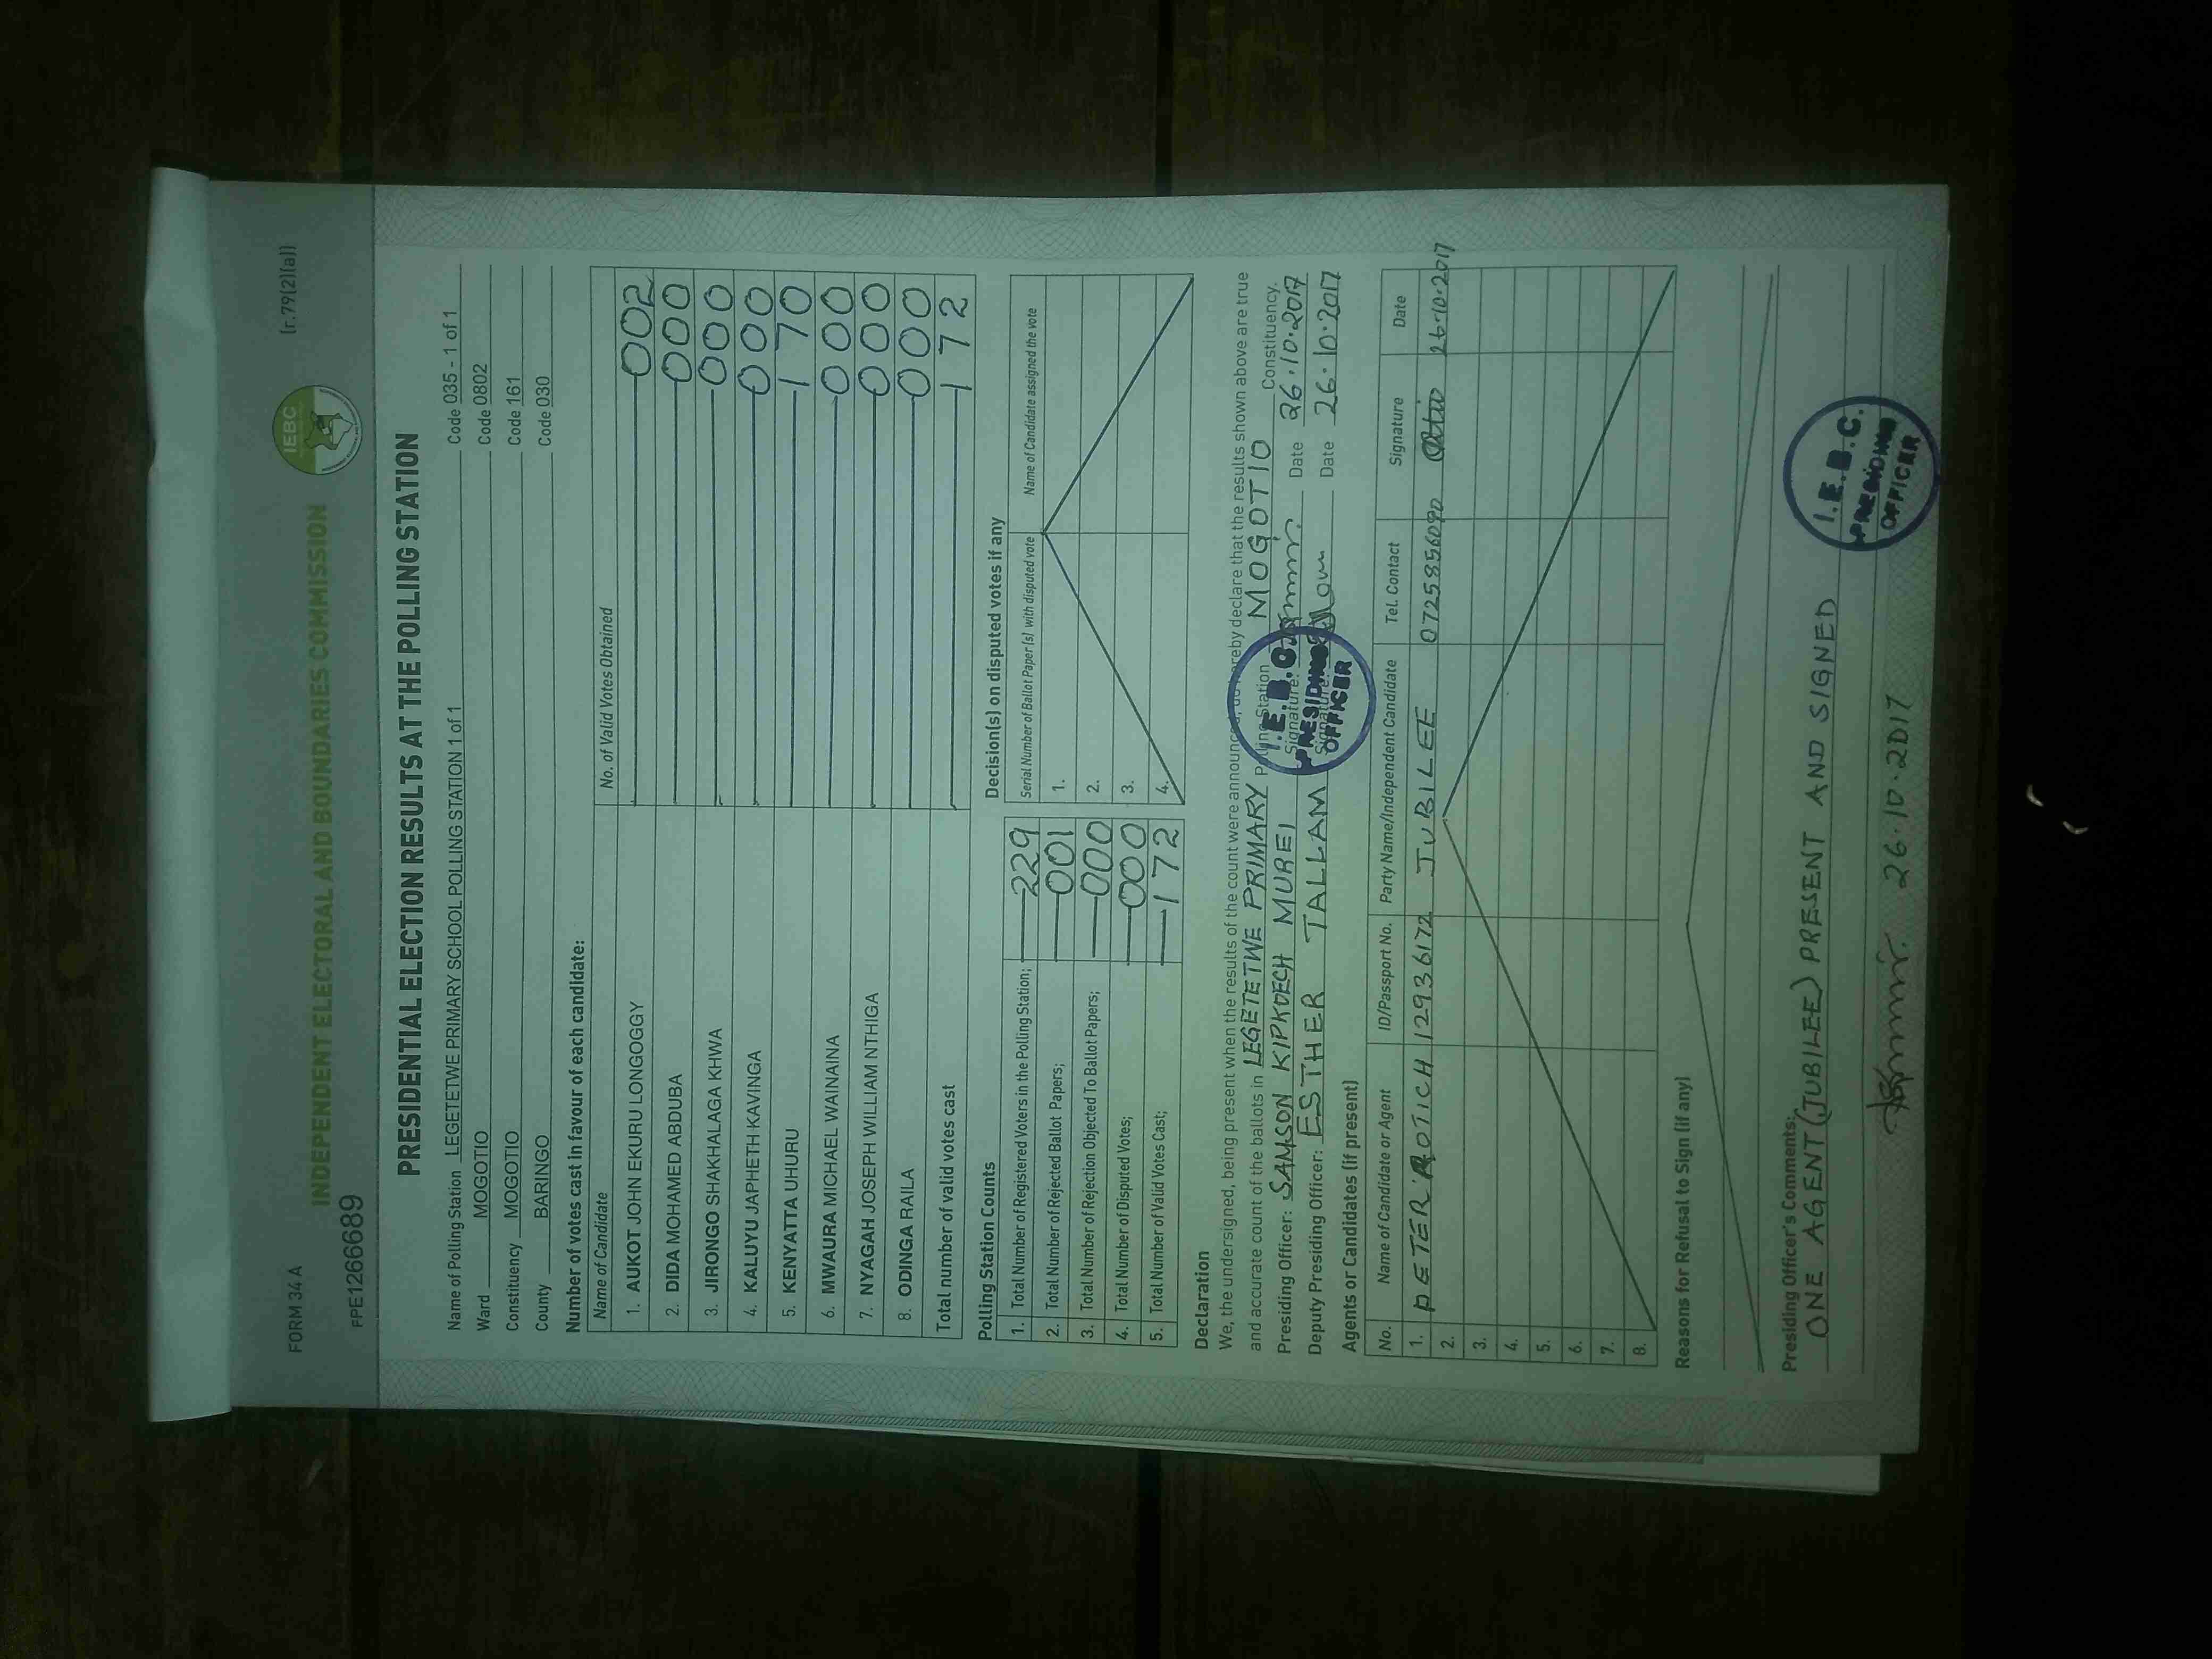 FORM 34 A
(r.79(2)(a))
IEBC
INDEPENDENT ELECTORAL AND BOUNDARIES COMMISSION
PPE1266689
PRESIDENTIAL ELECTION RESULTS AT THE POLLING STATION
Name of Polling Station LEGETETWE PRIMARY SCHOOL POLLING STATION 1 of 1 Code 035 - 1 of 1
Ward MOGOTIO Code 0802
Constituency MOGOTIO Code 161
County BARINGO Code 030
Number of votes cast in favour of each candidate:
Name of Candidate No. of Valid Votes Obtained
1. AUKOT JOHN EKURU LONGOGGY 002
2. DIDA MOHAMED ABDUBA 000
3. JIRONGO SHAKHALAGA KHWA 000
4. KALUYU JAPHETH KAVINGA 000
5. KENYATTA UHURU 170
6. MWAURA MICHAEL WAINAINA 000
7. NYAGAH JOSEPH WILLIAM NTHIGA 000
8. ODINGA RAILA 000
Total number of valid votes cast 172
Polling Station Counts
1. Total Number of Registered Voters in the Polling Station; 229
2. Total Number of Rejected Ballot Papers; 001
3. Total Number of Rejection Objected To Ballot Papers; 000
4. Total Number of Disputed Votes; 000
5. Total Number of Valid Votes Cast; 172
Decision(s) on disputed votes if any
Serial Number of Ballot Paper (s) with disputed vote Name of Candidate assigned the vote
1.
2.
3.
4.
Declaration
We, the undersigned, being present when the results of the count were announced, do hereby declare that the results shown above are true
and accurate count of the ballots in LEGETETWE PRIMARY Polling Station MOGOTIO Constituency.
Presiding Officer: SAMSON KIPKOECH MUREI Signature: Date 26.10.2017
Deputy Presiding Officer: ESTHER TALLAM Signature: Date 26.10.2017
I.E.B.C.
PRESIDING
OFFICER
Agents or Candidates (if present)
No. Name of Candidate or Agent ID/Passport No. Party Name/Independent Candidate Tel. Contact Signature Date
1. PETER ROTICH 12936172 JUBILEE 0725856090 26.10.2017
2.
3.
4.
5.
6.
7.
8.
Reasons for Refusal to Sign (if any)
Presiding Officer's Comments:
ONE AGENT (JUBILEE) PRESENT AND SIGNED
26.10.2017
I.E.B.C.
PRESIDING
OFFICER